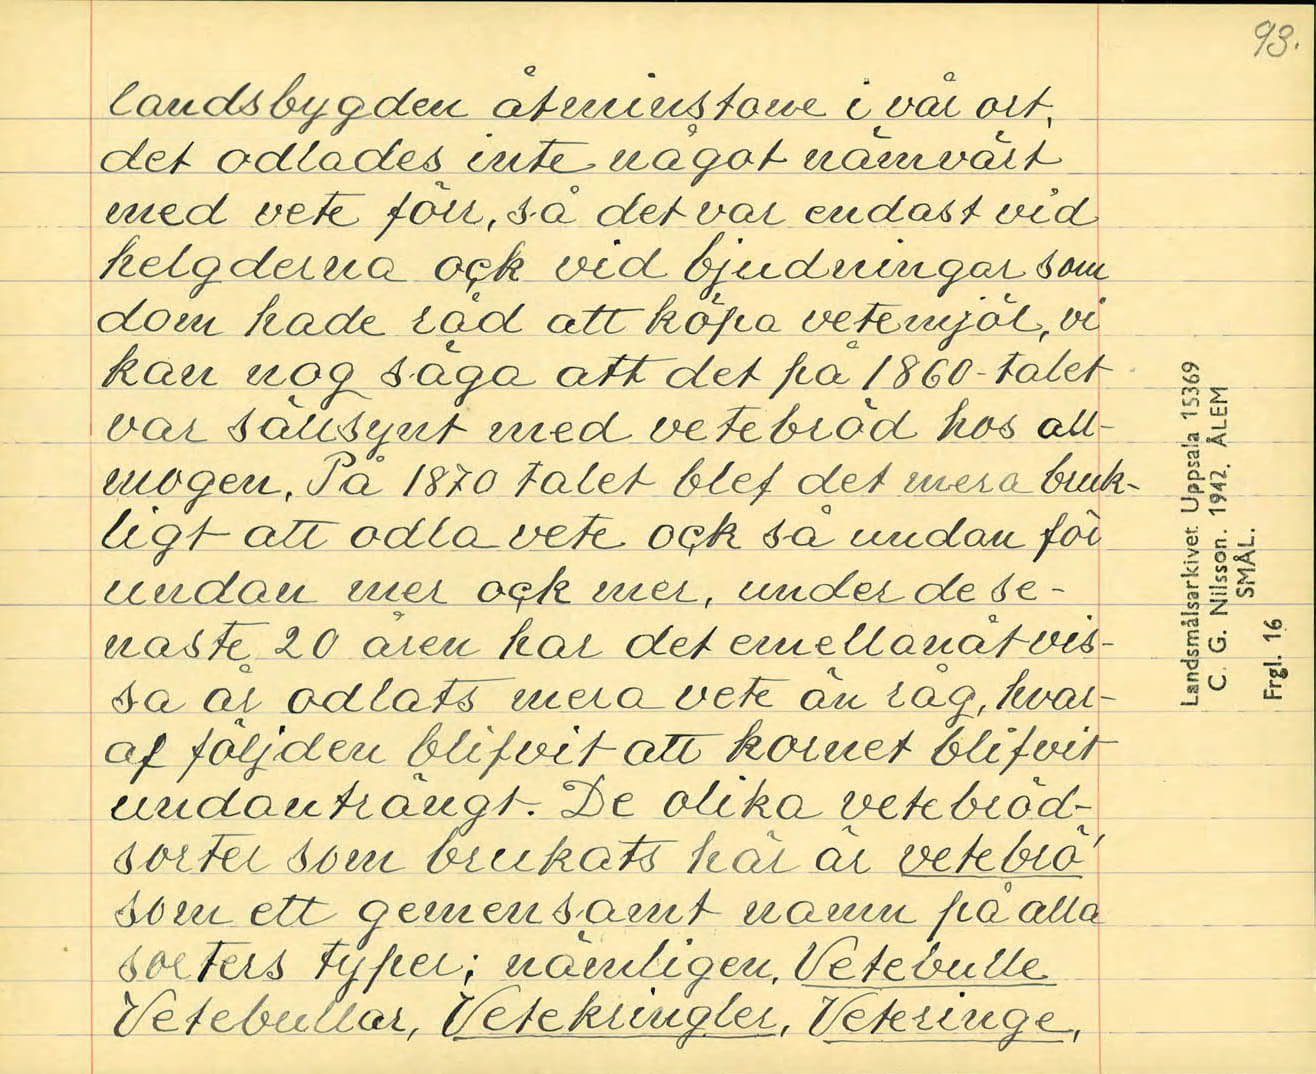 93.
landsbygden åtminstone i vår ort,
det odlades inte något nämvärt
med vete förr, så det var endast vid
helgderna ock vid bjudningar som
dom hade råd att köpa vetemjöl, vi
kan nog säga att det på 1860-talet
var sällsynt med vetebröd hos all-
mogen. På 1870 talet blef det mera bruk-
ligt att odla vete ock så undan för
undan mer ock mer, under de se-
naste 20 åren har det emellanåt vis-
sa år odlats mera vete än råg, hvar-
af följden blifvit att kornet blifvit
undanträngt. De olika vetebröd-
sorter som brukats här är vetebrö'
som ett gemensamt namn på alla
sorters typer; nämligen, Vetebulle
Vetebullar, Vetekringler, Veteringe,
Landsmålsarkivet Uppsala 15369
C. G. Nilsson. 1942. ÅLEM
SMÅL.
Frgl. 16